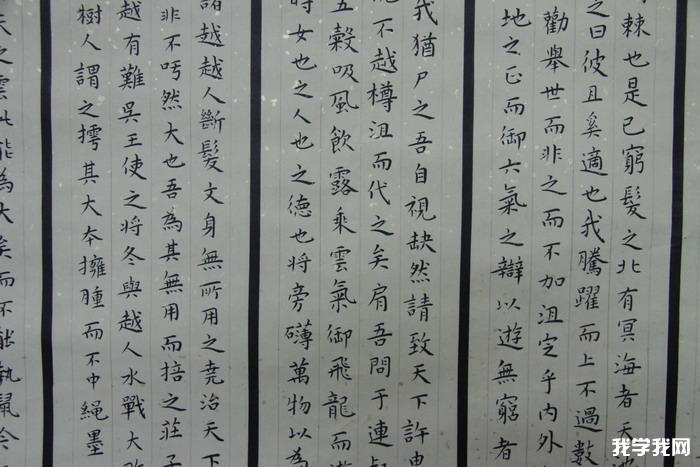 棘也是已窮髮之北有冥海者天
之曰彼且奚適也我騰躍而上不過數
勸舉世而非之而不加沮定乎內外
地之正而御六氣之辯以遊無窮者
我猶尸之吾自視缺然請致天下許由
不越樽沮而代之矣肩吾問于連叔
五穀吸風飲露乘雲氣御飛龍而遊
時女也之人也之德也将旁礴萬物以為
諸越越人斷髮文身無所用之堯治天下
非不呺然大也吾為其無用而掊之莊子
越有難吳王使之将冬與越人水戰大敗
樹人謂之樗其大本擁腫而不中繩墨
天之雲此能為大矣而不能執鼠今
我学我网